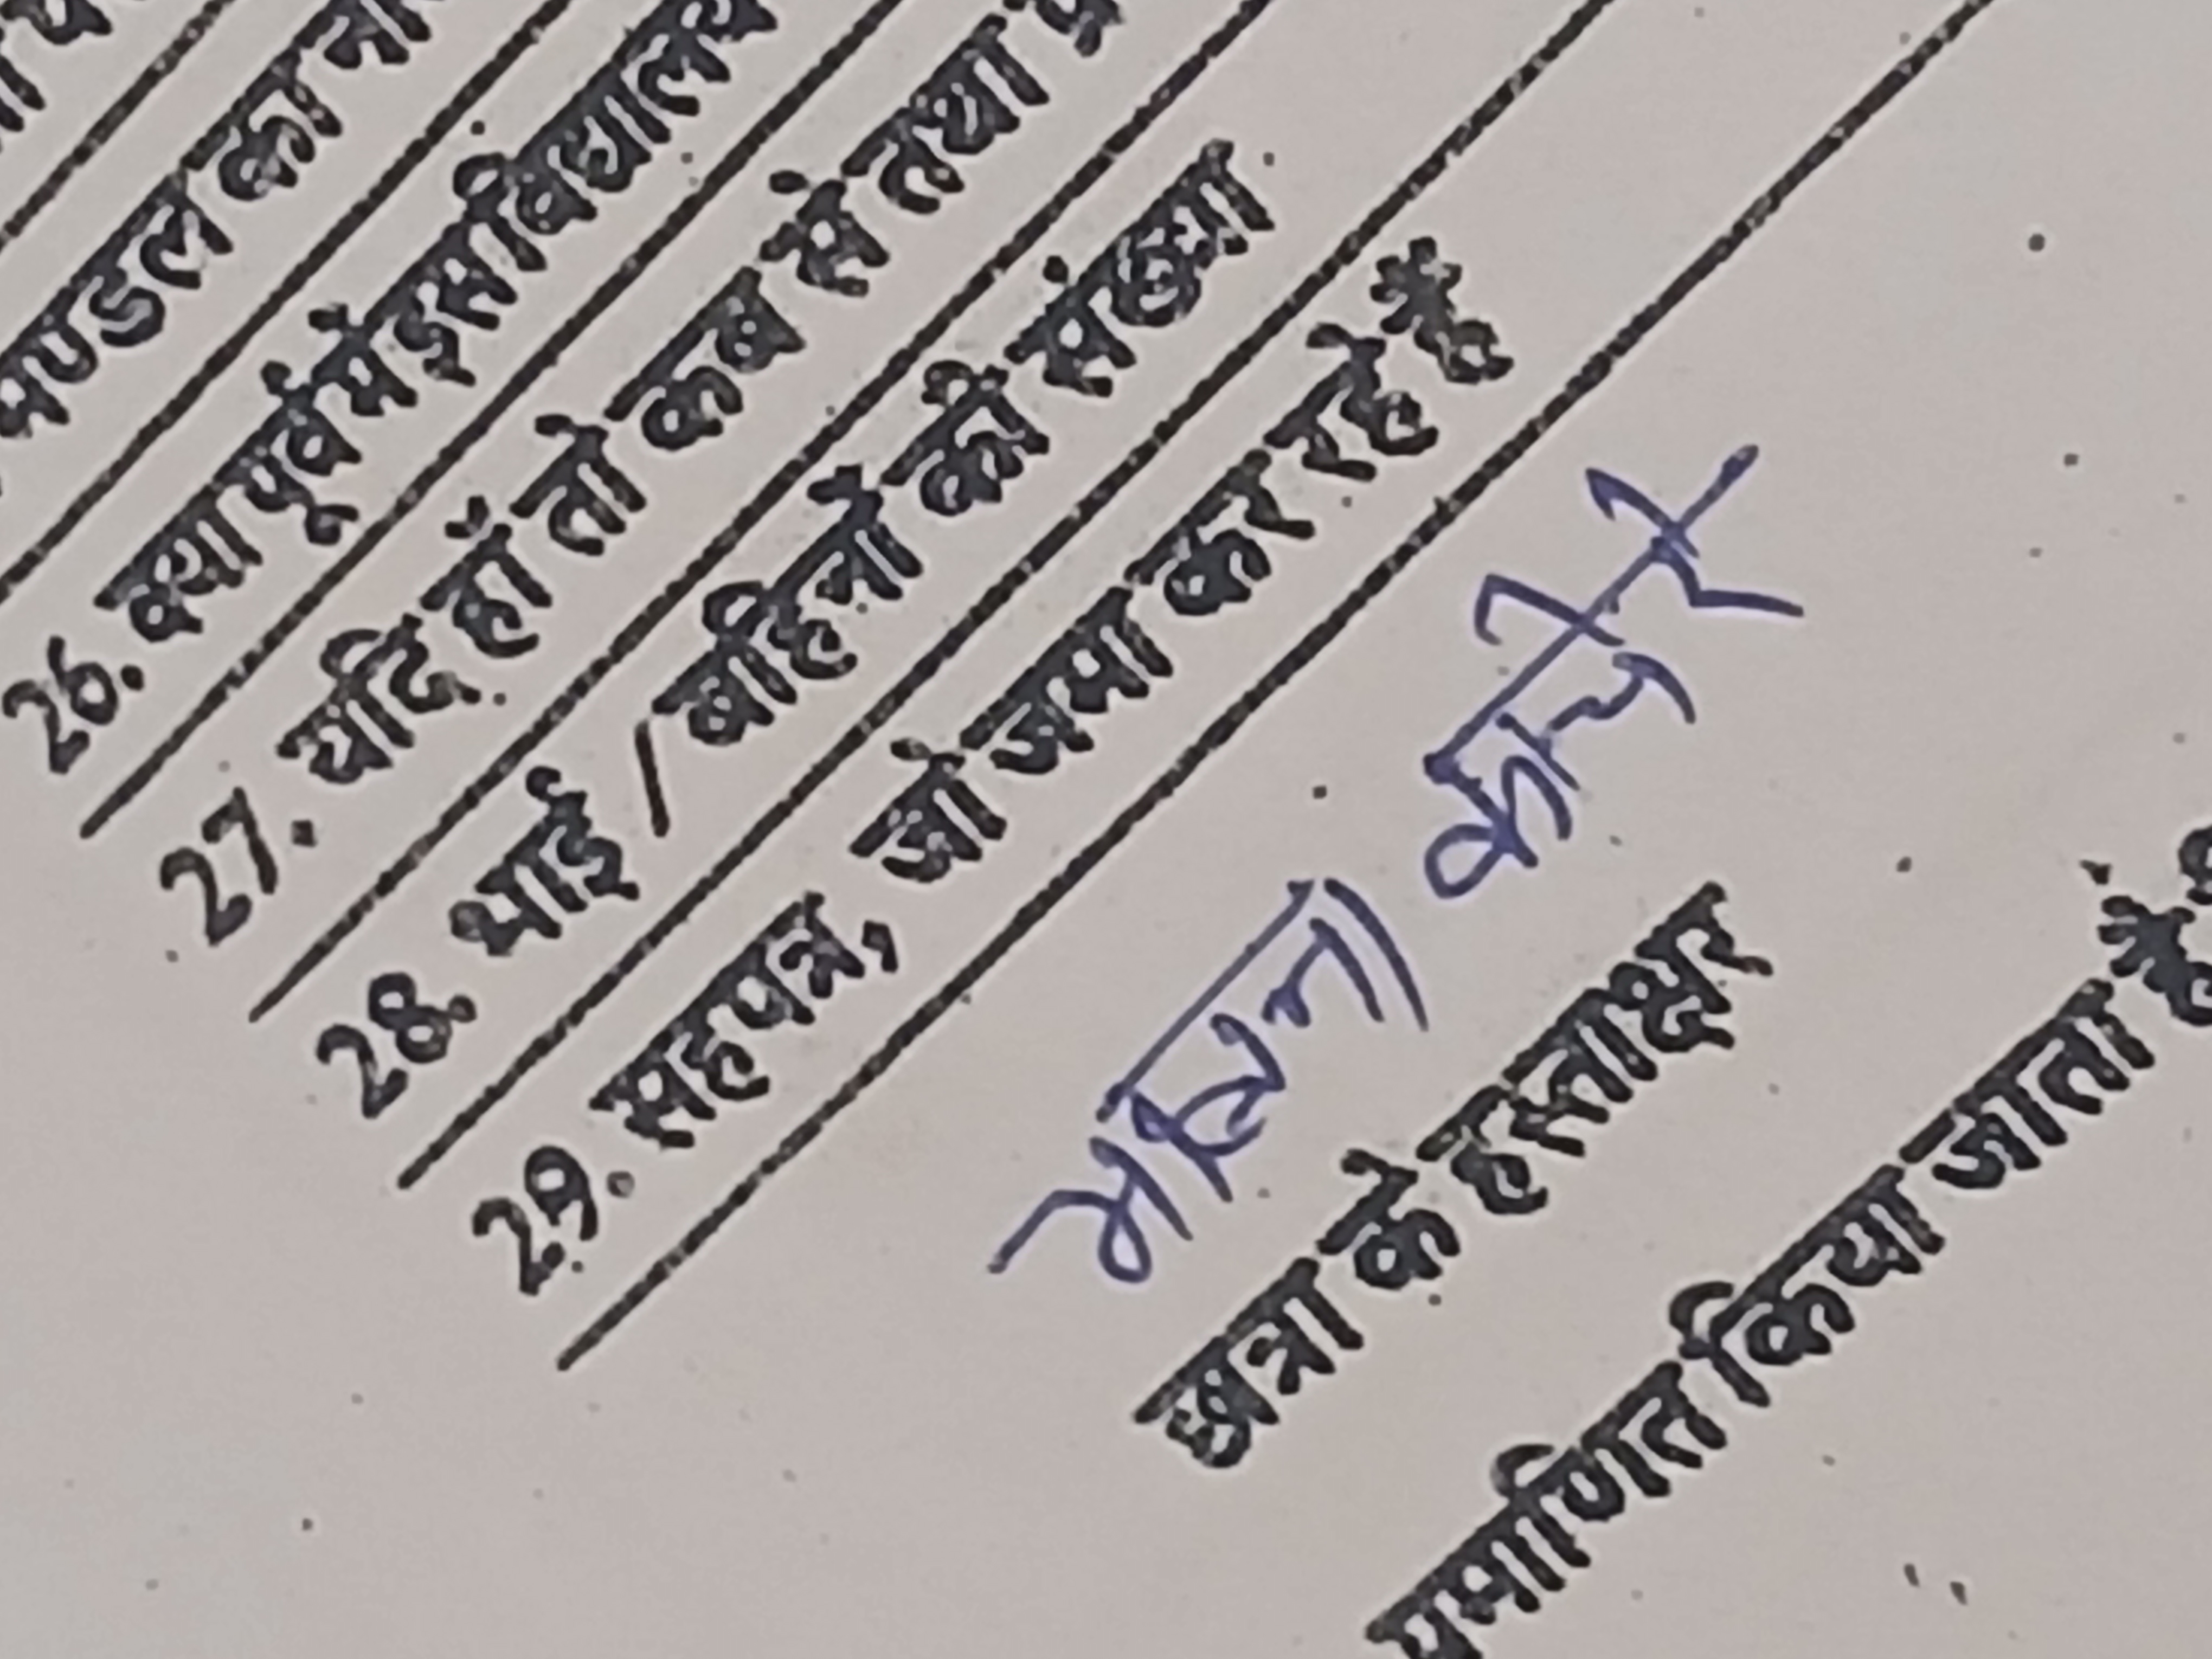 मण्डल का
26. क्या पूर्व में इस विद्यालय
27. यदि हाँ तो कब से तथा
28. भाई / बहिनों की संख्या
29. सहपत्र, जो जमा कर रहे हैं
छात्रा के हस्ताक्षर
प्रमाणित किया जाता है